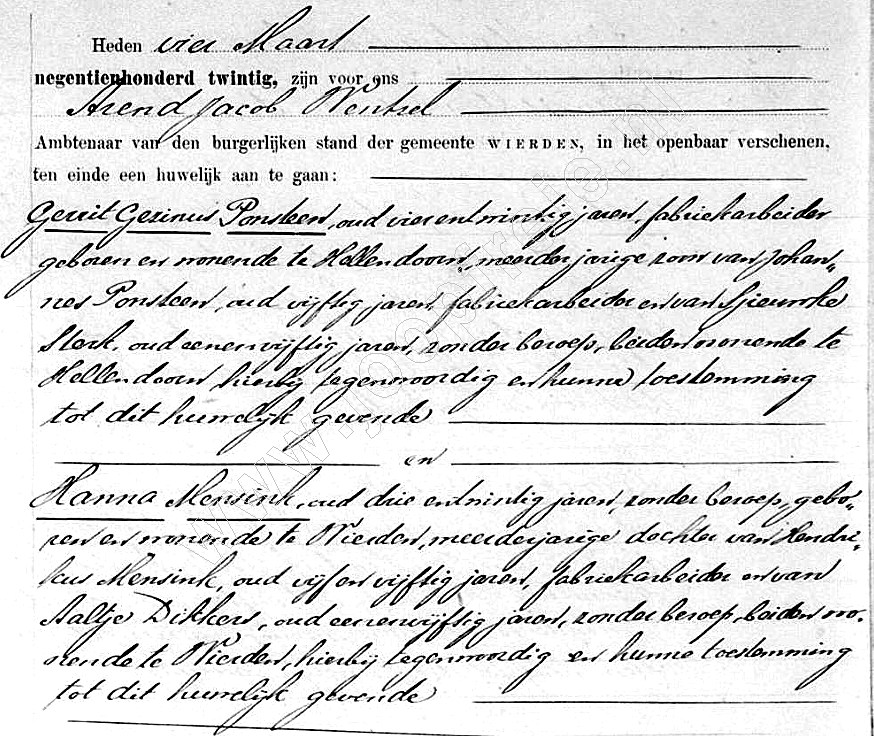 Heden vier Maart
negentienhonderd twintig, zijn voor ons
Arend Jacob Wentzel
Ambtenaar van den burgerlijken stand der gemeente WIERDEN, in het openbaar verschenen,
ten einde een huwelijk aan te gaan:
Gerrit Gezinus Ponsteen, oud vier en twintig jaren, fabriekarbeider
geboren en wonende te Hellendoorn, meerderjarige zoon van Johan„
nes Ponsteen, oud vijftig jaren, fabriekarbeider en van Sjouwke
Sterk, oud eenenvijftig jaren, zonder beroep, beiden wonende te
Hellendoorn, hierbij tegenwoordig en hunne toestemming
tot dit huwelijk gevende
en
Hanna Mensink, oud drie entwintig jaren, zonder beroep, gebo„
ren en wonende te Wierden, meerderjarige dochter van Hendri„
kus Mensink, oud vijf en vijftig jaren, fabriekarbeider en van
Aaltje Dikkers, oud eenenvijftig jaren, zonder beroep, beiden wo„
nende te Wierden, hierbij tegenwoordig en hunne toestemming
tot dit huwelijk gevende